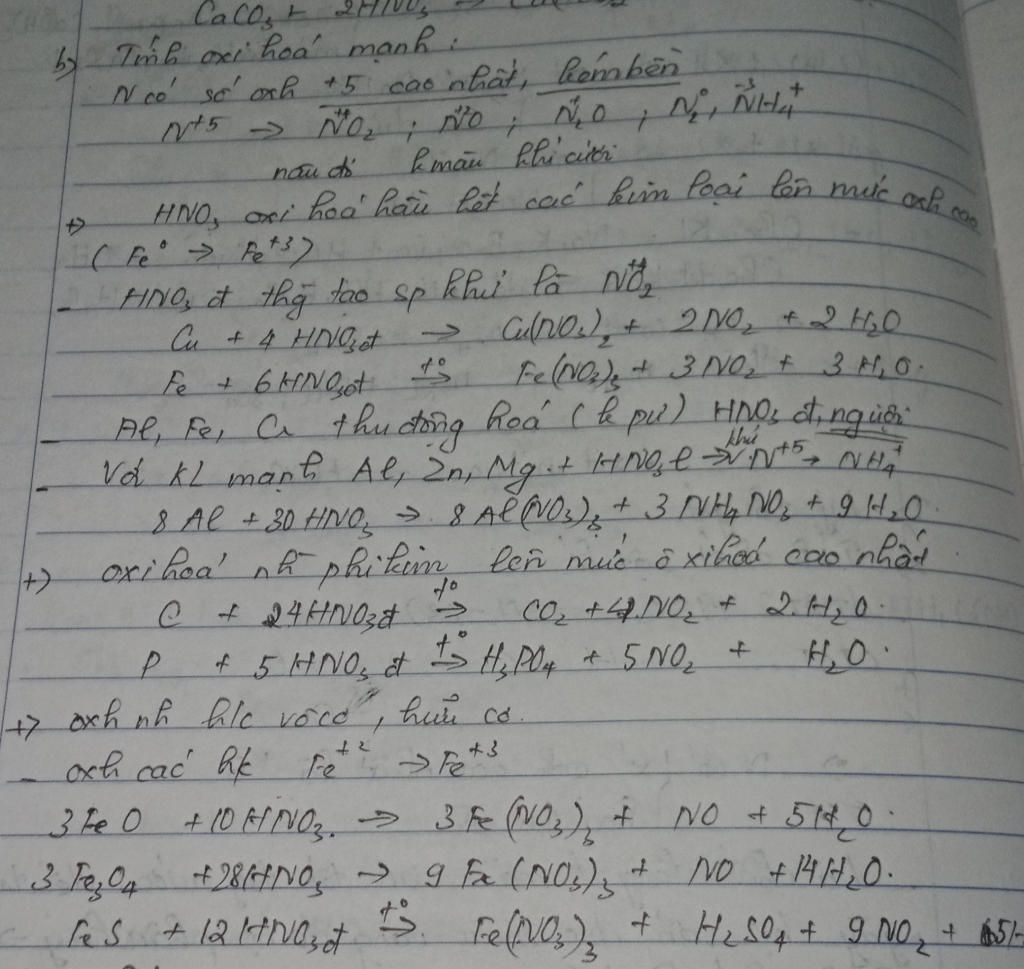 CaCO₃ + 2HNO₃ →
b) Tính oxi hoá mạnh:
N có số oxh +5 cao nhất, kém bền
N⁺⁵ → N⁺⁴O₂ ; N⁺²O ; N⁺¹₂O ; N₂⁰, N⁻³H₄⁺
nâu đỏ k màu khí cười
+) HNO₃ oxi hoá hầu hết các kim loại lên mức oxh cao
(Fe⁰ → Fe⁺³)
- HNO₃ đ thg tạo sp khí là N⁺⁴O₂
Cu + 4 HNO₃đ → Cu(NO₃)₂ + 2NO₂ + 2H₂O
Fe + 6HNO₃đ t⁰→ Fe(NO₃)₃ + 3NO₂ + 3H₂O.
- Al, Fe, Cr thụ động hoá (k pư) HNO₃ đ, nguội
- Với KL mạnh Al, Zn, Mg + HNO₃ l → khử N⁺⁵ → NH₄⁺
8Al + 30HNO₃ → 8Al(NO₃)₃ + 3NH₄NO₃ + 9H₂O
+) oxi hoá nh phi kim lên mức ôxi hoá cao nhất
C + 4HNO₃đ t⁰→ CO₂ + 4NO₂ + 2.H₂O.
P + 5HNO₃ đ t⁰→ H₃PO₄ + 5NO₂ + H₂O.
+) oxh nh h/c vô cơ, hữu cơ.
- oxh các hk Fe⁺² → Fe⁺³
3FeO + 10HNO₃. → 3Fe(NO₃)₃ + NO + 5H₂O.
3Fe₃O₄ + 28HNO₃ → 9Fe(NO₃)₃ + NO + 14H₂O.
FeS + 12HNO₃đ t⁰→ Fe(NO₃)₃ + H₂SO₄ + 9NO₂ + 5H